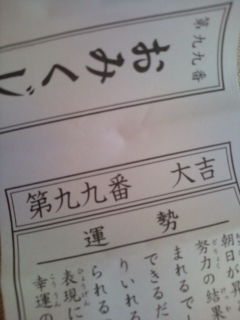 第九九番
おみくじ
第九九番 大吉
運勢
朝日が昇
努力の結果
まれるで
できるだ
りいれる
られる
表現に
幸運の